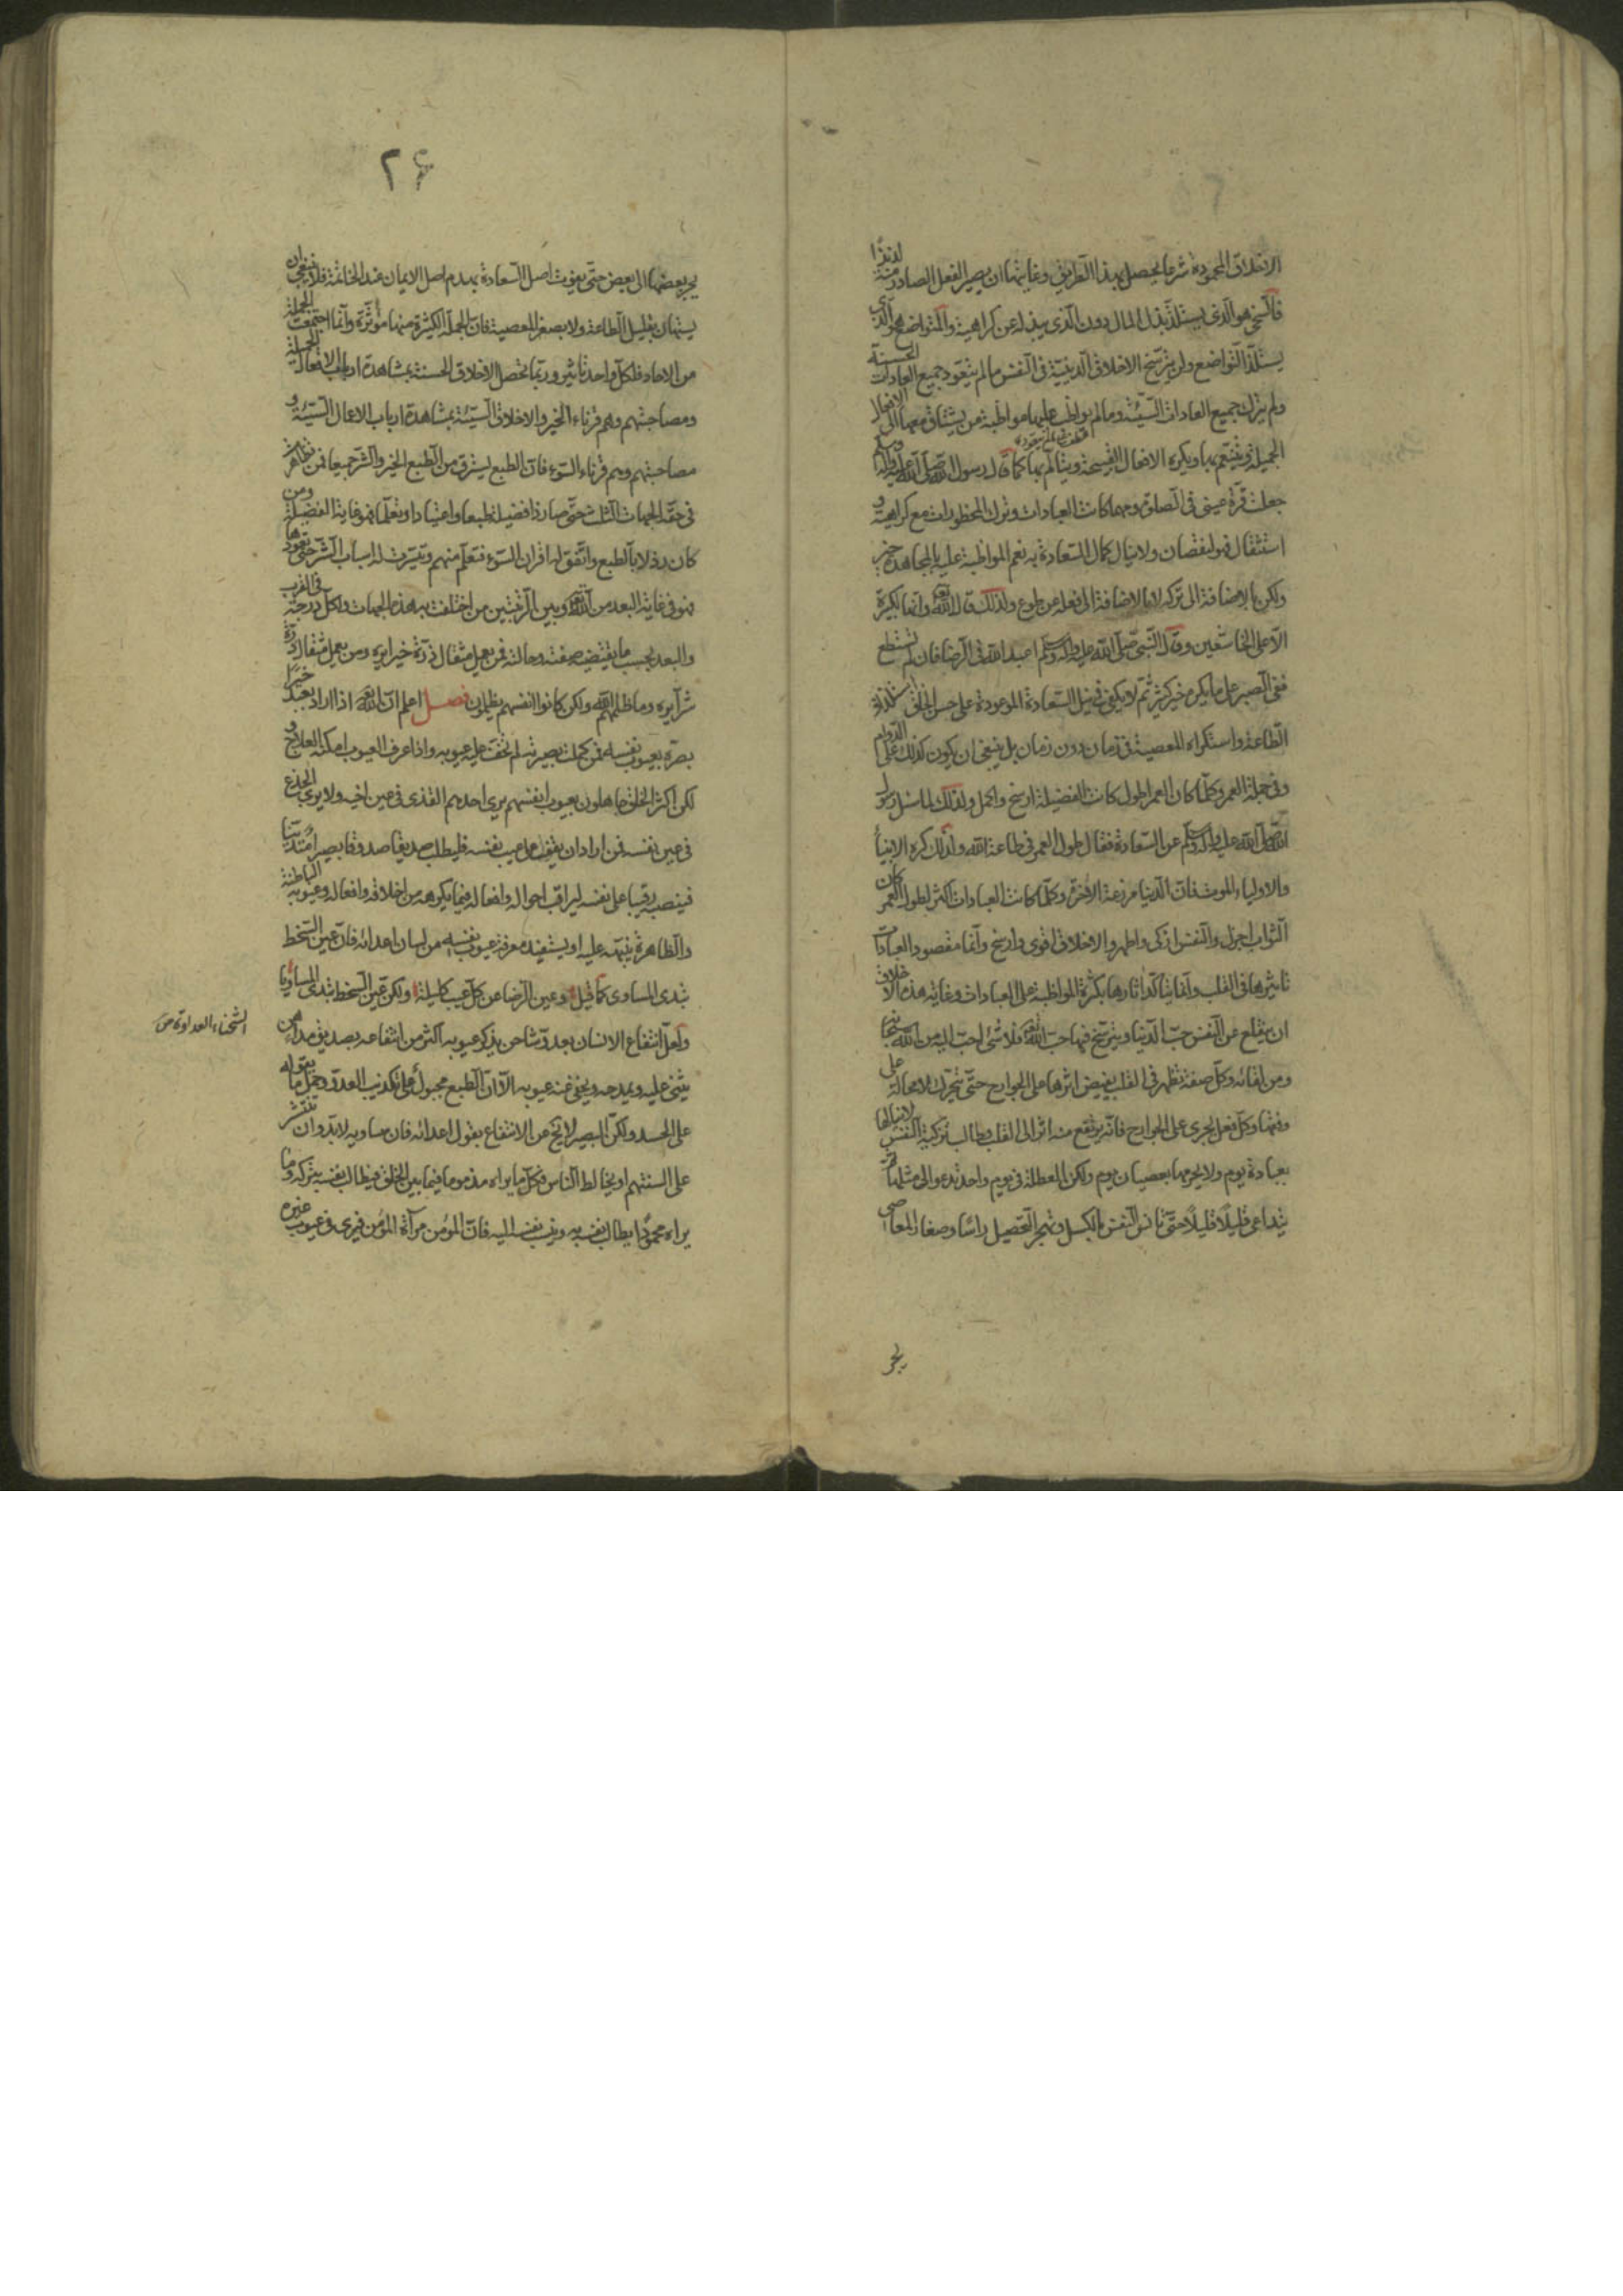 الاخلاق المحمودة شرعا يحصل بهذا الطريق وغايتها ان يصير الفعل الصادر منه لذيذا
فالسخى هو الذى يستلذ بذل المال دون الذى يبذله عن كراهية والمتواضع هو الذى
يستلذ التواضع ولن يترسخ الاخلاق الدينية فى النفس ما لم يتعود جميع العادات الحسنة
ولم يترك جميع العادات السيئة وما لم يواظب عليها مواظبة من يشتاق معها الى الافعال
الجميلة ويتنعم بها ويكره الافعال القبيحة ويتألم بها كما قال رسول الله صلى الله عليه وآله وسلم
جعلت قرة عينى فى الصلوة ومهما كانت العبادات وترك المحظورات مع كراهية و
استثقال فهو لنقصان ولا ينال كمال السعادة به نعم المواظبة عليها بالمجاهدة خير
ولكن بالاضافة الى تركه لا بالاضافة الى فعله عن طوع ولذلك قال الله تعالى وانها لكبيرة
الا على الخاشعين وقال النبى صلى الله عليه وآله وسلم اعبد الله فى الرضا فان لم تستطع
ففى الصبر على ما يكره خير كثير ثم لا يكفى فى نيل السعادة الموعودة على حسن الخلق استلذاذ
الطاعة واستكراه المعصية فى زمان دون زمان بل ينبغى ان يكون كذلك على الدوام
وفى جملة العمر وكلما كان العمر اطول كانت الفضيلة ارسخ واكمل ولذلك لما سئل رسول
الله صلى الله عليه وآله وسلم عن السعادة فقال طول العمر فى طاعة الله ولذلك كره الانبياء
والاولياء الموت فان الدنيا مزرعة الآخرة وكلما كانت العبادات اكثر لطول العمر كان
الثواب اجزل والنفس ازكى واطهر والاخلاق اقوى وارسخ وانما مقصود العبادات
تاثيرها فى القلب وانما يتأكد آثارها بكثرة المواظبة على العبادات وغاية هذه الاخلاق
ان يقلع عن النفس حب الدنيا ويترسخ فيها حب الله تعالى فلا شئ احب اليه من الله سبحانه
ومن لقائه وكل صفة تظهر فى القلب يفيض اثرها على الجوارح حتى تتحرك لا محالة على
وفقها وكل فعل يجرى على الجوارح فانه يرتفع منه اثر الى القلب وطالب تزكية النفس لا ينالها
بعبادة يوم ولا يحرمها بعصيان يوم ولكن العطلة فى يوم واحد تدعو الى مثلها ثم
يتداعى قليلا قليلا حتى تانس النفس بالكسل وتهجر التحصيل رأسا وصغار المعاصى
يجر
٢۶
يجر بعضها الى بعض حتى يفوت اصل السعادة بهدم اصل الايمان عند الخاتمة فلا ينبغى ان
يستهان بقليل الطاعة ولا بصغر المعصية فان الجملة الكثيرة منها مؤثرة وانما اجتمعت الجملة
من الاحاد فلكل واحد تاثير وربما تحصل الاخلاق الحسنة بمشاهدة ارباب الافعال الجميلة
ومصاحبتهم وهم قرناء الخير والاخلاق السيئة بمشاهدة ارباب الاعمال السيئة و
مصاحبتهم وهم قرناء السوء فان الطبع يسرق من الطبع الخير والشر جميعا فمن تظاهر
فى حقه الجهات الثلث حتى صار ذا فضيلة طبعا واعتيادا وتعلما فهو فى غاية الفضيلة ومن
كان رذلا بالطبع واتفق له اقران السوء فتعلم منهم وتيسرت له اسباب الشر حتى تعودها
فهو فى غاية البعد من الله تعالى وبين الرتبتين من اختلفت به هذه الجهات ولكل درجة فى القرب
والبعد بحسب ما يقتضيه صفته وحالته فمن يعمل مثقال ذرة خيرا يره ومن يعمل مثقال ذرة
شرا يره وما ظلمهم الله ولكن كانوا انفسهم يظلمون فصل اعلم ان الله تعالى اذا اراد بعبد خيرا
بصره بعيوب نفسه فمن كملت بصيرته لم تخف عليه عيوبه واذا عرف العيوب امكنه العلاج و
لكن اكثر الخلق جاهلون بعيوب انفسهم يرى احدهم القذى فى عين اخيه ولا يرى الجذع
فى عين نفسه فمن اراد ان يقف على عيب نفسه فليطلب صديقا صدوقا بصيرا متدينا
فينصبه رقيبا على نفسه ليراقب احواله وافعاله فيما يكرهه من اخلاقه وافعاله وعيوبه الباطنة
والظاهرة ينبهه عليه او يستفيد معرفة عيوب نفسه من لسان اعدائه فان عين السخط
تبدى المساوى كما قيل وعين الرضا عن كل عيب كليلة ولكن عين السخط تبدى المساويا
ولعل انتفاع الانسان بعدو مشاحن يذكر عيوبه اكثر من انتفاعه بصديق مداهن
يثنى عليه ويمدحه ويخفى عنه عيوبه الا ان الطبع مجبول على تكذيب العدو وحمل ما يقوله
على الحسد ولكن البصير لا يخ عن الانتفاع بقول اعدائه فان مساويه لابد وان تنتشر
على السنتهم او يخالط الناس فكل ما يراه مذموما فيما بين الخلق فيطالب نفسه بتركه وما
يراه محمودا يطالب نفسه به وينسب نفسه اليه فان المؤمن مرآة المؤمن فيرى فى عيوب غيره
الشحناء العداوة ص